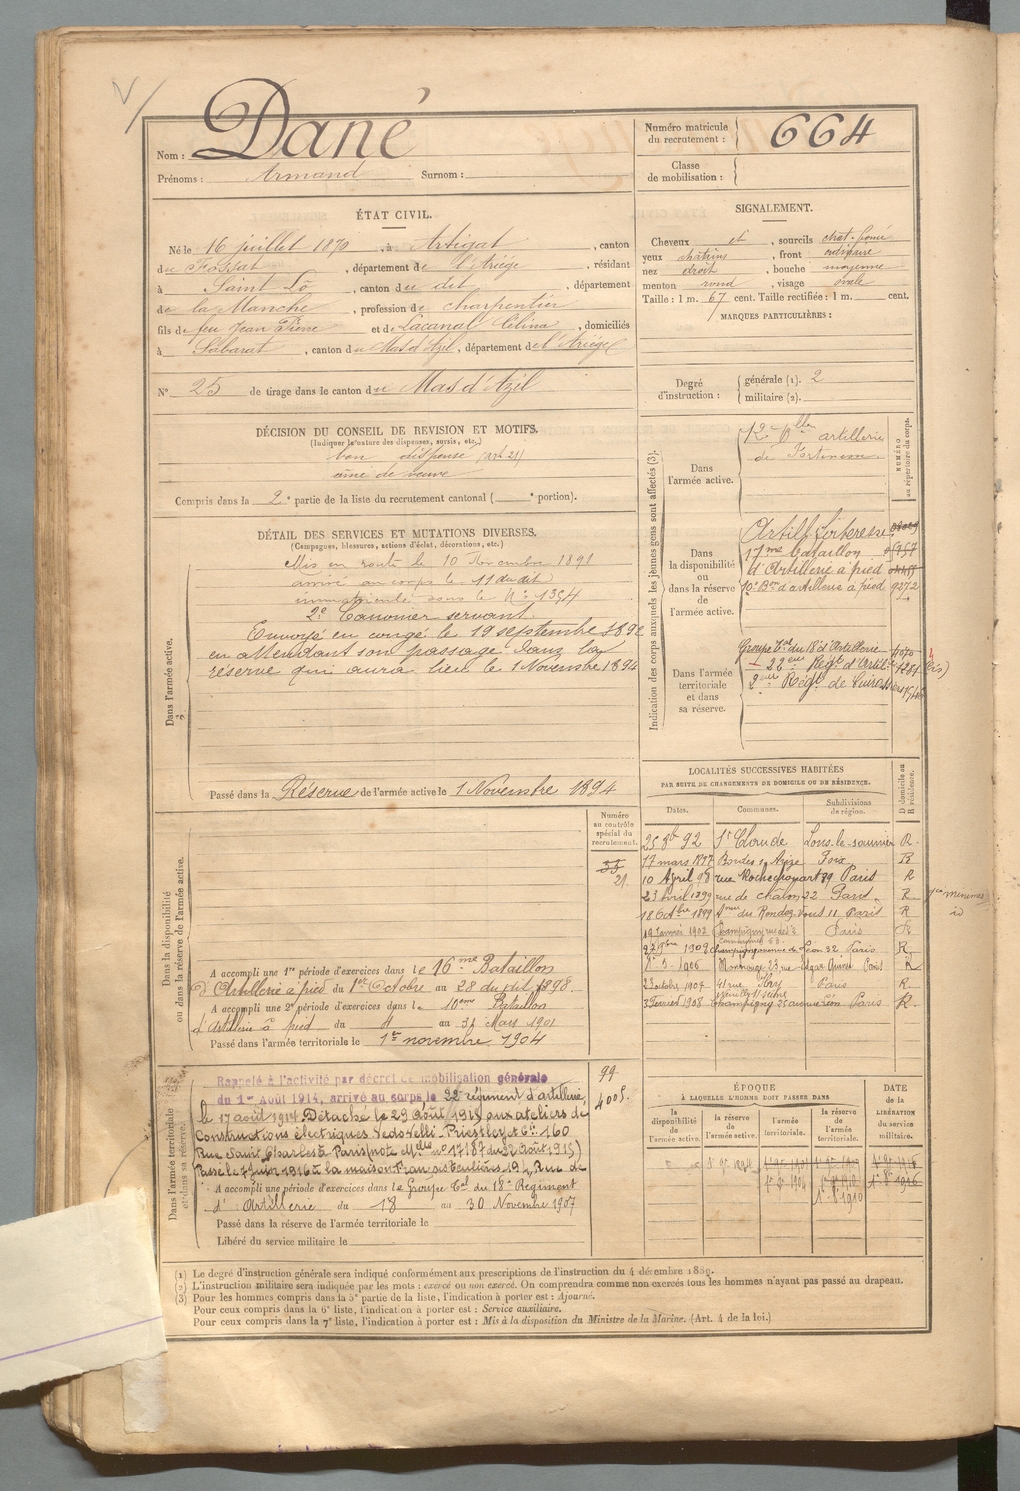 Nom : Dané
Prénoms : Armand Surnom :
Numéro matricule du recrutement : 664
Classe de mobilisation :
ÉTAT CIVIL.
Né le 16 juillet 1870, à Artigat, canton
du Fossat, département de l'Ariège, résidant
à Saint Lô, canton du dit, département
de la Manche, profession de charpentier
fils de feu Jean Pierre et de Lacanal Célina, domiciliés
à Sabarat, canton du Mas d'Azil, département de l'Ariège
N° 25 de tirage dans le canton du Mas d'Azil
SIGNALEMENT.
Cheveux et, sourcils chat-foncé
yeux châtains, front ordinaire
nez droit, bouche moyenne
menton rond, visage ovale
Taille : 1 m. 67 cent. Taille rectifiée : 1 m. cent.
MARQUES PARTICULIÈRES :
Degré d'instruction : générale (1). 2
militaire (2).
DÉCISION DU CONSEIL DE REVISION ET MOTIFS.
(Indiquer la nature des dispenses, sursis, etc.)
bon dispensé (art 21)
aîné de veuve
Compris dans la 2e partie de la liste du recrutement cantonal ( e portion).
DÉTAIL DES SERVICES ET MUTATIONS DIVERSES.
(Campagnes, blessures, actions d'éclat, décorations, etc.)
Dans l'armée active.
Mis en route le 10 Novembre 1891
arrivé au corps le 11 du dit
immatriculé sous le N° 1354
2e Canonnier servant
Envoyé en congé le 19 septembre 1892
en attendant son passage dans la
réserve qui aura lieu le 1 Novembre 1894
Passé dans la Réserve de l'armée active le 1 Novembre 1894
Indication des corps auxquels les jeunes gens sont affectés (3).
NUMÉRO au répertoire du corps.
Dans l'armée active.
artillerie
de Forteresse
Dans la disponibilité ou dans la réserve de l'armée active.
Artill. forteresse
17me bataillon
d'Artillerie à pied
10e Bon d'artillerie à pied 9272
Dans l'armée territoriale et dans sa réserve.
Groupe Tal du 18 d'Artillerie 1070
22eme Regt d'Artie 1281 (bis)
2eme Régt de Cuirassiers
LOCALITÉS SUCCESSIVES HABITÉES
PAR SUITE DE CHANGEMENTS DE DOMICILE OU DE RÉSIDENCE.
Dates. Communes. Subdivisions de région. D domicile ou R résidence.
25 8b 92 St Claude Lons-le-saunier R.
17 mars 1897 Foix R
10 Avril 98 rue Rochechouart 89 Paris R
23 Avril 1899 rue de Chalon 22 Paris R
18 Octbre 1899 du Rendez-vous 11 Paris R
19 Janvier 1902 Champigny Paris R
1902 Paris R.
1906 Montrouge 23 rue Edgar Quinet Paris R
23 octobre 1907 41 rue Paris R
3 Février 1908 Champigny 25 avenue Paris R.
Dans la disponibilité ou dans la réserve de l'armée active.
Numéro au contrôle spécial du recrutement.
21
A accompli une 1re période d'exercices dans le 16me Bataillon
d'Artillerie à pied du 1er Octobre au 28 du dit 1898.
A accompli une 2e période d'exercices dans le 10eme Bataillon
d'Artillerie à pied du 4 au 31 Mars 1901
Passé dans l'armée territoriale le 1er novembre 1904
Dans l'armée territoriale et dans sa réserve.
99
4005
Rappelé à l'activité par décret de mobilisation générale
du 1er Août 1914, arrivé au corps le 22e régiment d'artillerie,
le 17 août 1914. Détaché le 29 août 1915 aux ateliers de
Constructions électriques Vedovelli-Priestley et Cie 160
Rue Saint Charles à Paris (note Mlle n° 17187 du 22 Août 1915)
Passé le 7 juin 1916 à la maison Rue de
A accompli une période d'exercices dans le Groupe Tal du 18e Regiment
d'Artillerie du 18 au 30 Novembre 1907
Passé dans la réserve de l'armée territoriale le
Libéré du service militaire le
ÉPOQUE
À LAQUELLE L'HOMME DOIT PASSER DANS
la disponibilité de l'armée active. la réserve de l'armée active. l'armée territoriale. la réserve de l'armée territoriale.
DATE de la LIBÉRATION du service militaire.
1er 9bre 1894
(1) Le degré d'instruction générale sera indiqué conformément aux prescriptions de l'instruction du 4 décembre 1889.
(2) L'instruction militaire sera indiquée par les mots : exercé ou non exercé. On comprendra comme non exercés tous les hommes n'ayant pas passé au drapeau.
(3) Pour les hommes compris dans la 5e partie de la liste, l'indication à porter est : Ajourné.
Pour ceux compris dans la 6e liste, l'indication à porter est : Service auxiliaire.
Pour ceux compris dans la 7e liste, l'indication à porter est : Mis à la disposition du Ministre de la Marine. (Art. 4 de la loi.)